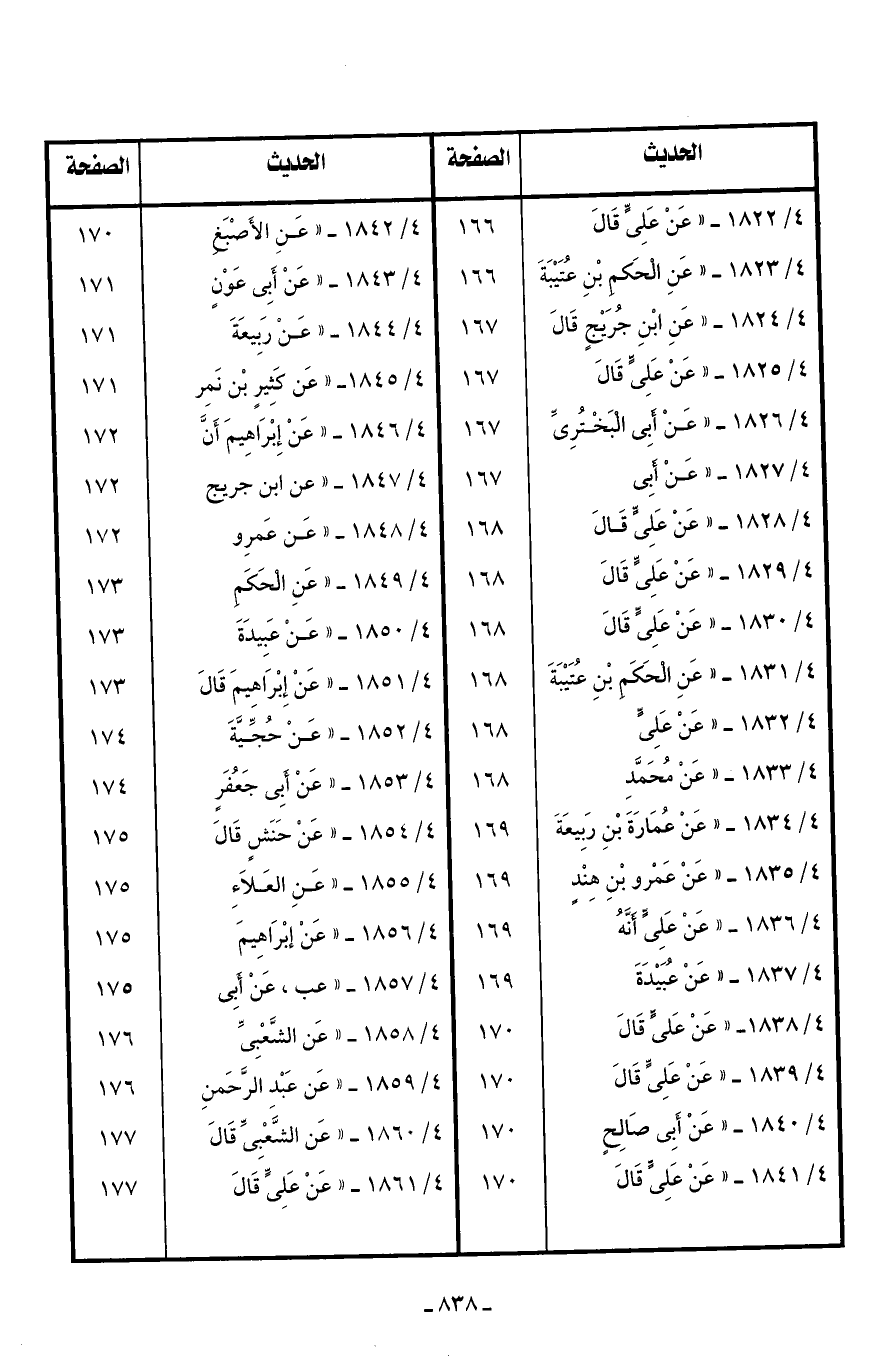 الحديث الصفحة الحديث الصفحة
٤/ ١٨٢٢ ـ « عَنْ عَلِىٍّ قَالَ ١٦٦ ٤/ ١٨٤٢ ـ « عَـنِ الأَصْبَغِ ١٧٠
٤/ ١٨٢٣ ـ « عَنِ الْحَكَمِ بْنِ عُتَيْبَةَ ١٦٦ ٤/ ١٨٤٣ ـ « عَنْ أَبِى عَوْنٍ ١٧١
٤/ ١٨٢٤ ـ « عَنِ ابْنِ جُرَيْجٍ قَالَ ١٦٧ ٤/ ١٨٤٤ ـ « عَـنْ رَبِيعَةَ ١٧١
٤/ ١٨٢٥ ـ « عَنْ عَلِىٍّ قَالَ ١٦٧ ٤/ ١٨٤٥ـ « عَن كَثِيرِ بْن نَمر ١٧١
٤/ ١٨٢٦ ـ « عَـنْ أَبِى الْبَخْـتُرِىِّ ١٦٧ ٤/ ١٨٤٦ ـ « عَنْ إِبْرَاهِيمَ أَنَّ ١٧٢
٤/ ١٨٢٧ ـ « عَـنْ أَبِى ١٦٧ ٤/ ١٨٤٧ ـ « عن ابن جريج ١٧٢
٤/ ١٨٢٨ ـ « عَنْ عَلِىٍّ قَـالَ ١٦٨ ٤/ ١٨٤٨ ـ « عَـن عَمرِو ١٧٢
٤/ ١٨٢٩ ـ « عَنْ عَلِىٍّ قَالَ ١٦٨ ٤/ ١٨٤٩ ـ « عَنِ الْحَكَمِ ١٧٣
٤/ ١٨٣٠ ـ « عَنْ عَلِىٍّ قَالَ ١٦٨ ٤/ ١٨٥٠ ـ « عَـنْ عَبِيدَةَ ١٧٣
٤/ ١٨٣١ ـ « عَنِ الْحَكَمِ بْنِ عُتَيْبَةَ ١٦٨ ٤/ ١٨٥١ ـ « عَنْ إِبْرَاهِيمَ قَالَ ١٧٣
٤/ ١٨٣٢ ـ « عَنْ عَلِىٍّ ١٦٨ ٤/ ١٨٥٢ ـ « عَـنْ حُجِّـيَّةَ ١٧٤
٤/ ١٨٣٣ ـ « عَنْ مُحَمَّدِ ١٦٨ ٤/ ١٨٥٣ ـ « عَنْ أَبِى جَعُفَرٍ ١٧٤
٤/ ١٨٣٤ ـ « عَنْ عُمَارَةَ بْنِ رَبِيعَةَ ١٦٩ ٤/ ١٨٥٤ ـ « عَنْ حَنَشٍ قَالَ ١٧٥
٤/ ١٨٣٥ ـ « عَنْ عَمْرِو بْنِ هِنْدٍ ١٦٩ ٤/ ١٨٥٥ ـ « عَـنِ العَـلاَءِ ١٧٥
٤/ ١٨٣٦ ـ « عَنْ عَلِىٍّ أَنَّهُ ١٦٩ ٤/ ١٨٥٦ ـ « عَنْ إِبْرَاهِيمَ ١٧٥
٤/ ١٨٣٧ ـ « عَنْ عُبَيْدَةَ ١٦٩ ٤/ ١٨٥٧ ـ « عب ، عَنْ أَبِى ١٧٥
٤/ ١٨٣٨ـ « عَنْ عَلِىٍّ قَالَ ١٧٠ ٤/ ١٨٥٨ ـ « عَن الشَّعْبِىِّ ١٧٦
٤/ ١٨٣٩ ـ « عَنْ عَلِىٍّ قَالَ ١٧٠ ٤/ ١٨٥٩ ـ « عَن عَبْدِ الرَّحَمنِ ١٧٦
٤/ ١٨٤٠ ـ « عَنْ أَبِى صَالِحٍ ١٧٠ ٤/ ١٨٦٠ ـ « عَن الشَّعْبِىِّ قَالَ ١٧٧
٤/ ١٨٤١ ـ « عَنْ عَلِىٍّ قَالَ ١٧٠ ٤/ ١٨٦١ ـ « عَنْ عَلِىٍّ قَالَ ١٧٧
ـ ٨٣٨ ـ